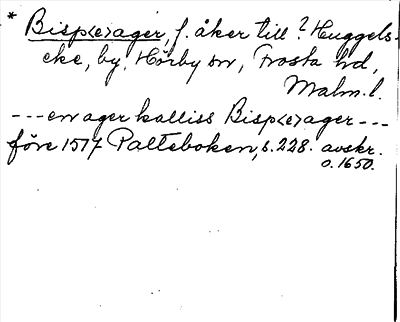 * Bisp(e)ager, f. åker till ? Huggels-
eke, by, Hörby sn, Frosta hd,
Malm. l.
--- en ager kalliss Bisp(e)ager ---
före 1517 Palteboken, s. 228. avskr.
o. 1650.